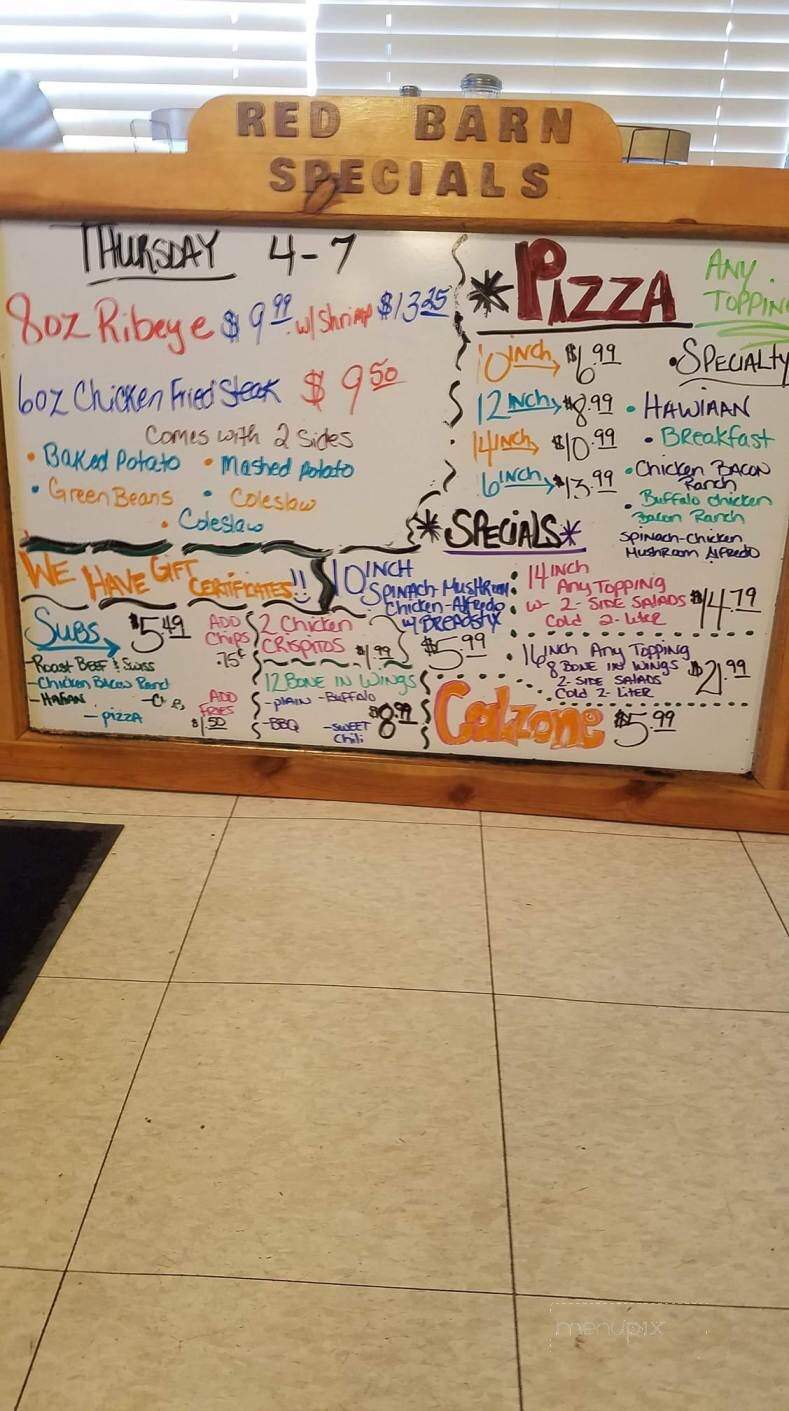 RED BARN
SPECIALS
THURSDAY 4-7
8oz Ribeye $9.99 w/ Shrimp $13.25
6oz Chicken Fried Steak $9.50
Comes with 2 Sides
• Baked Potato • Mashed potato
• Green Beans • Coleslaw
• Coleslaw
WE HAVE GIFT CERTIFICATES!!
Subs $5.49
- Roast BEEF & Swiss
- Chicken Bacon Ranch
- Italian
- pizza
ADD
Chips
.75¢
ADD
FRIES
$1.50
2 Chicken
CRISPITOS $1.99
12 BONE IN WINGS
- plain - Buffalo
- BBQ - SWEET
Chili
$8.99
*PIZZA
ANY
TOPPING
10 inch $6.99
12 INCH $8.99
14 INCH $10.99
6 INCH $13.99
• SPECIALTY
• HAWIIAN
• Breakfast
• Chicken BACON
Ranch
• Buffalo chicken
Bacon Ranch
SPINACH-Chicken
MushRoom Alfredo
*SPECIALS*
10 INCH
SPINACH-MushRoom
Chicken-Alfredo
w/ BREADSTIX
$5.99
• 14 INCH
Any TOPPING
w- 2- SIDE SALADS
Cold 2-LiteR
$14.79
• 16 INCH Any TOPPING
8 BONE IN WINGS
2-SIDE SALADS
Cold 2-LITER
$21.99
Calzone $5.99
menupix